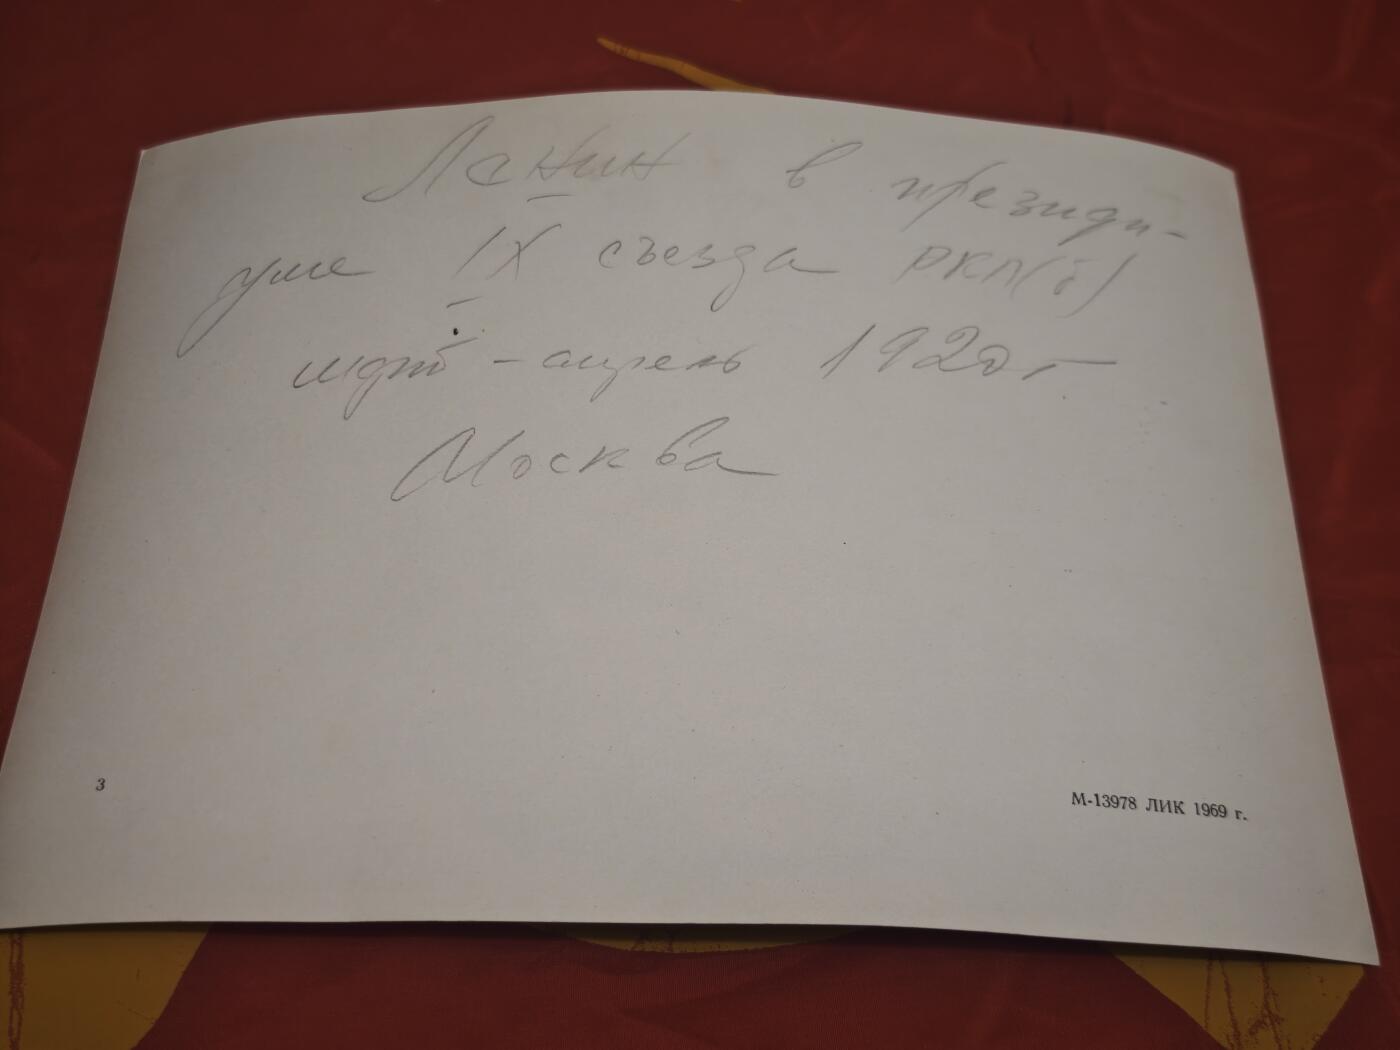 Ленин в президи-
уме IX съезда РКП(б)
март - апрель 1920 г
Москва
3
М-13978 ЛИК 1969 г.